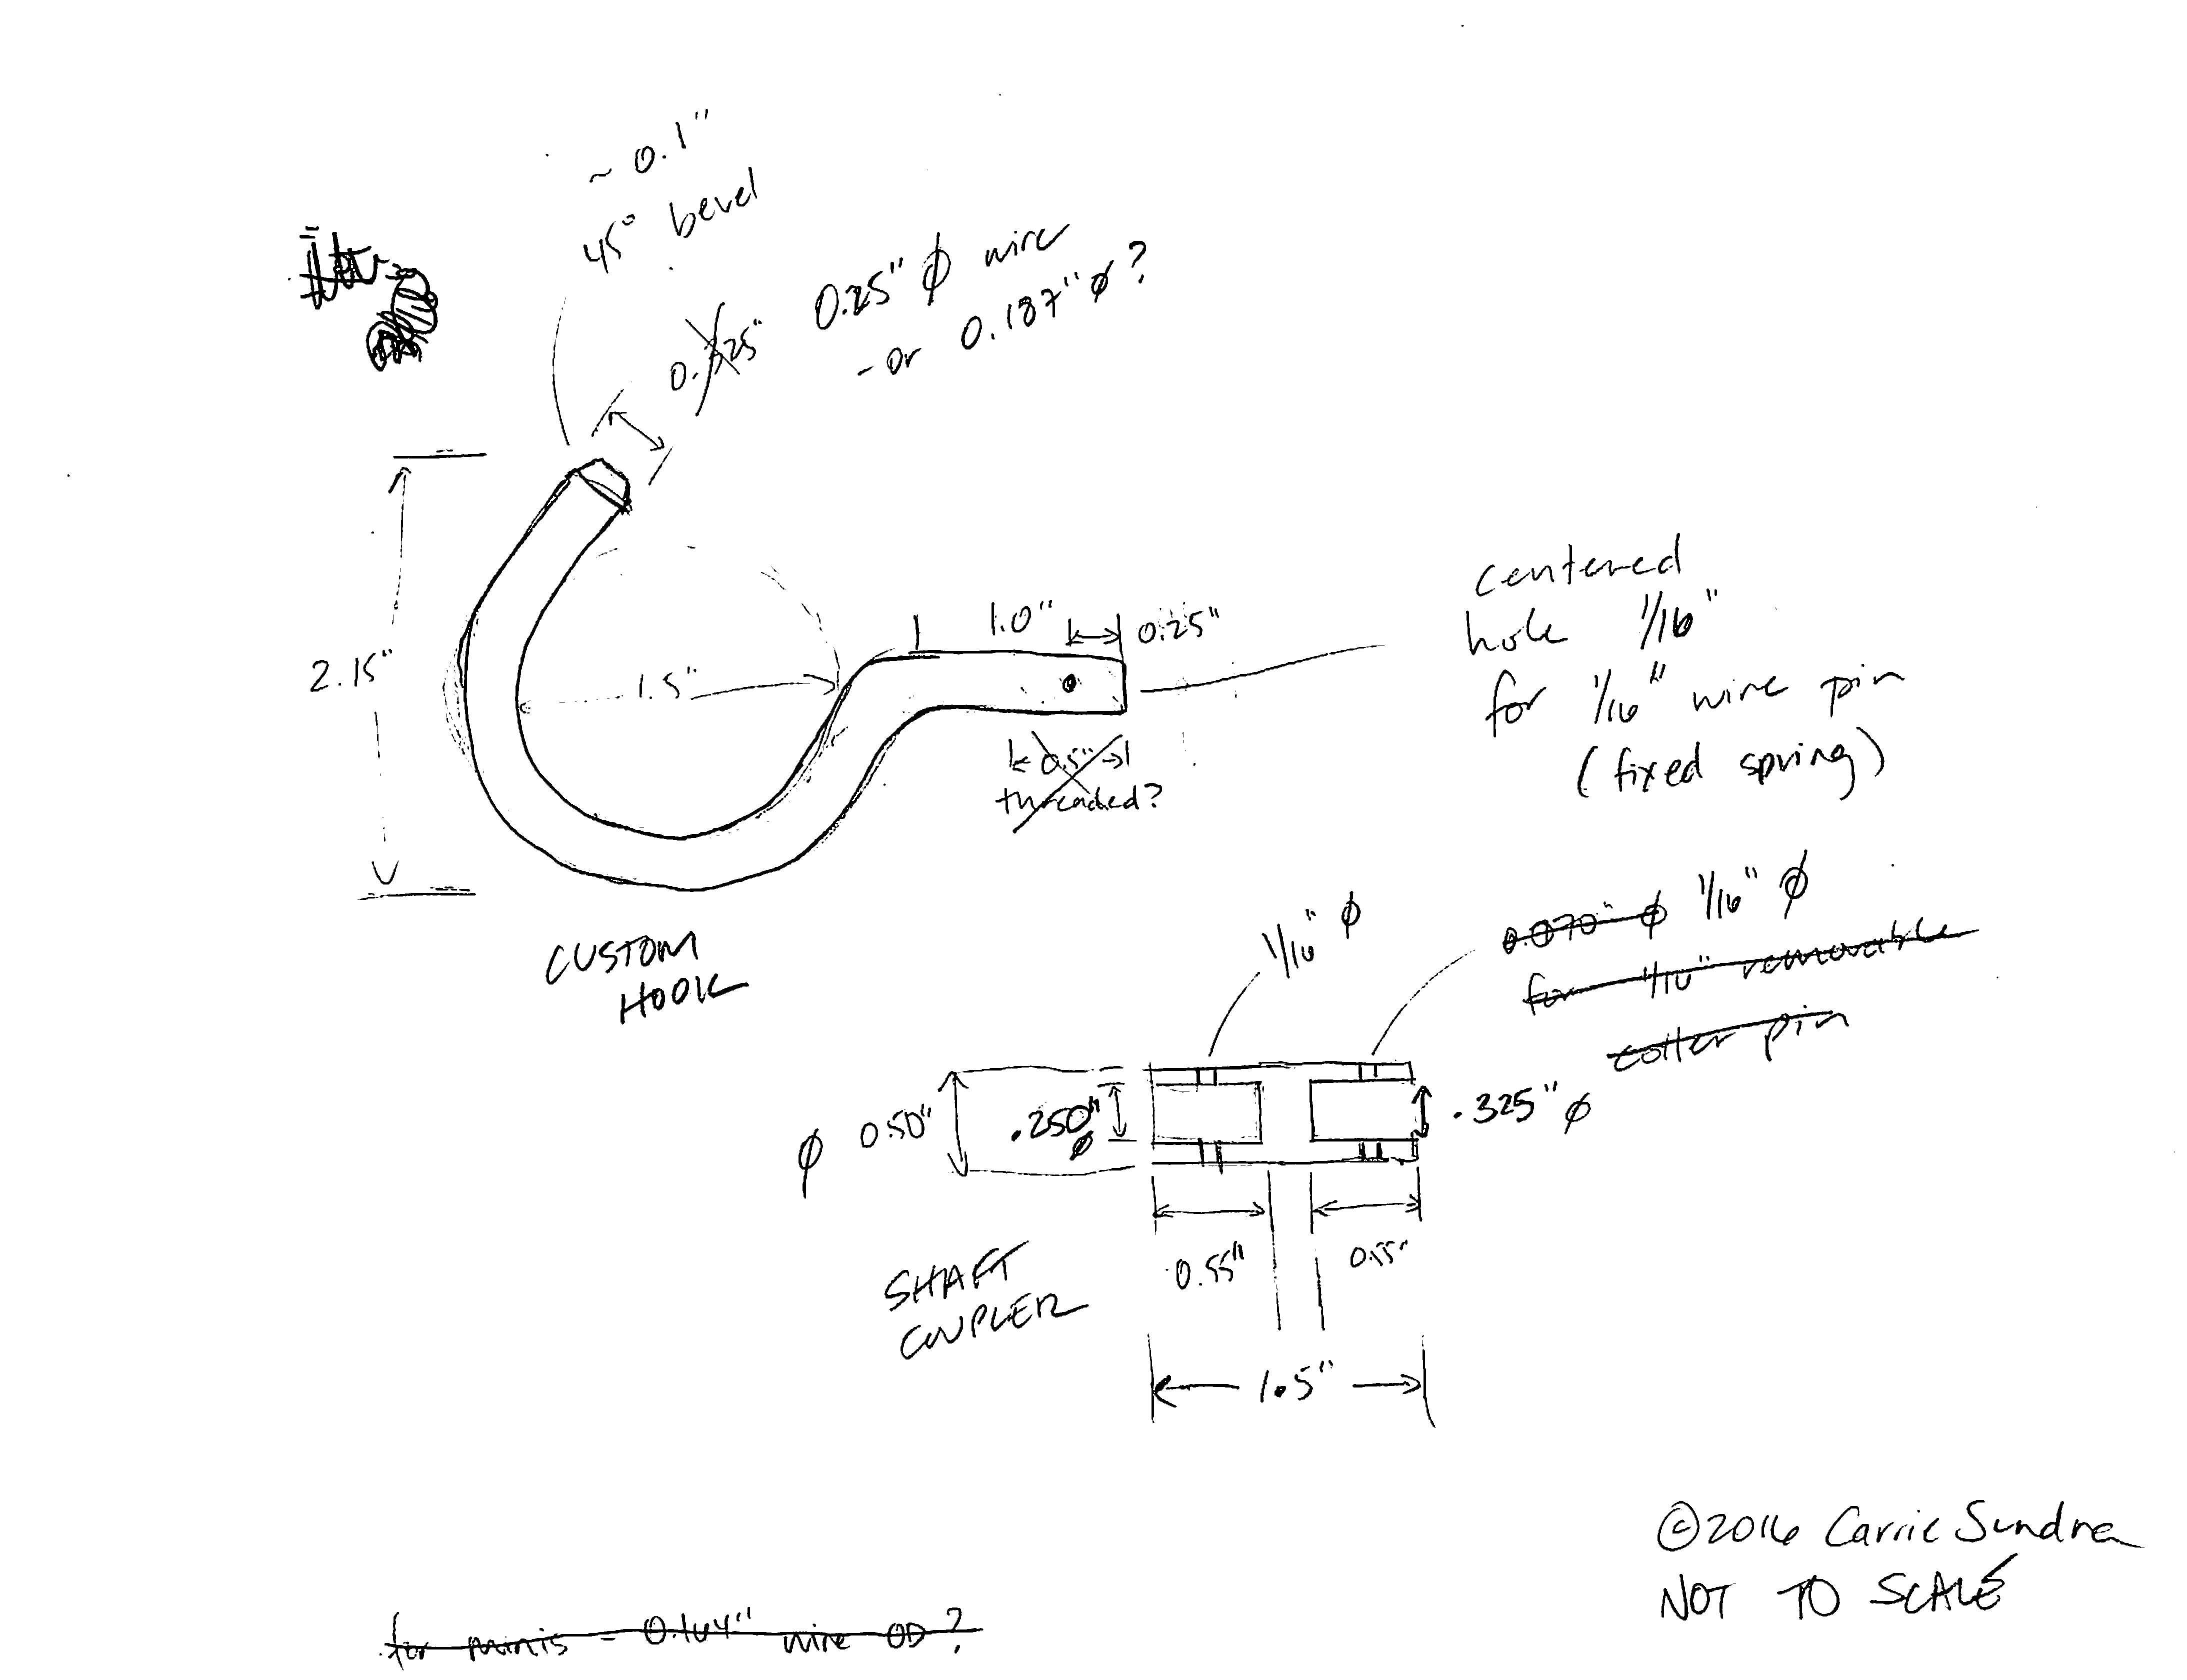 ~ 0.1"
45° bevel
0.25" ϕ wire
- or 0.187" ϕ?
2.15"
1.5"
1.0"
0.25"
0.5"
threaded?
centered
hole 1/16"
for 1/16" wire pin
(fixed spring)
CUSTOM
HOOK
1/16" ϕ
0.070" ϕ 1/16" ϕ
for 1/16" removable
cotter pin
ϕ 0.50"
.250" ϕ
.325" ϕ
0.55"
0.55"
SHAFT
COUPLER
1.5"
©2016 Carrie Sundra
NOT TO SCALE
for minis - 0.164" wire OD?